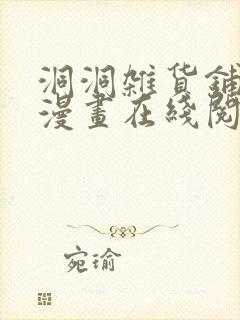 洞洞雜貨鋪
漫畫在綫閱
宛瑜